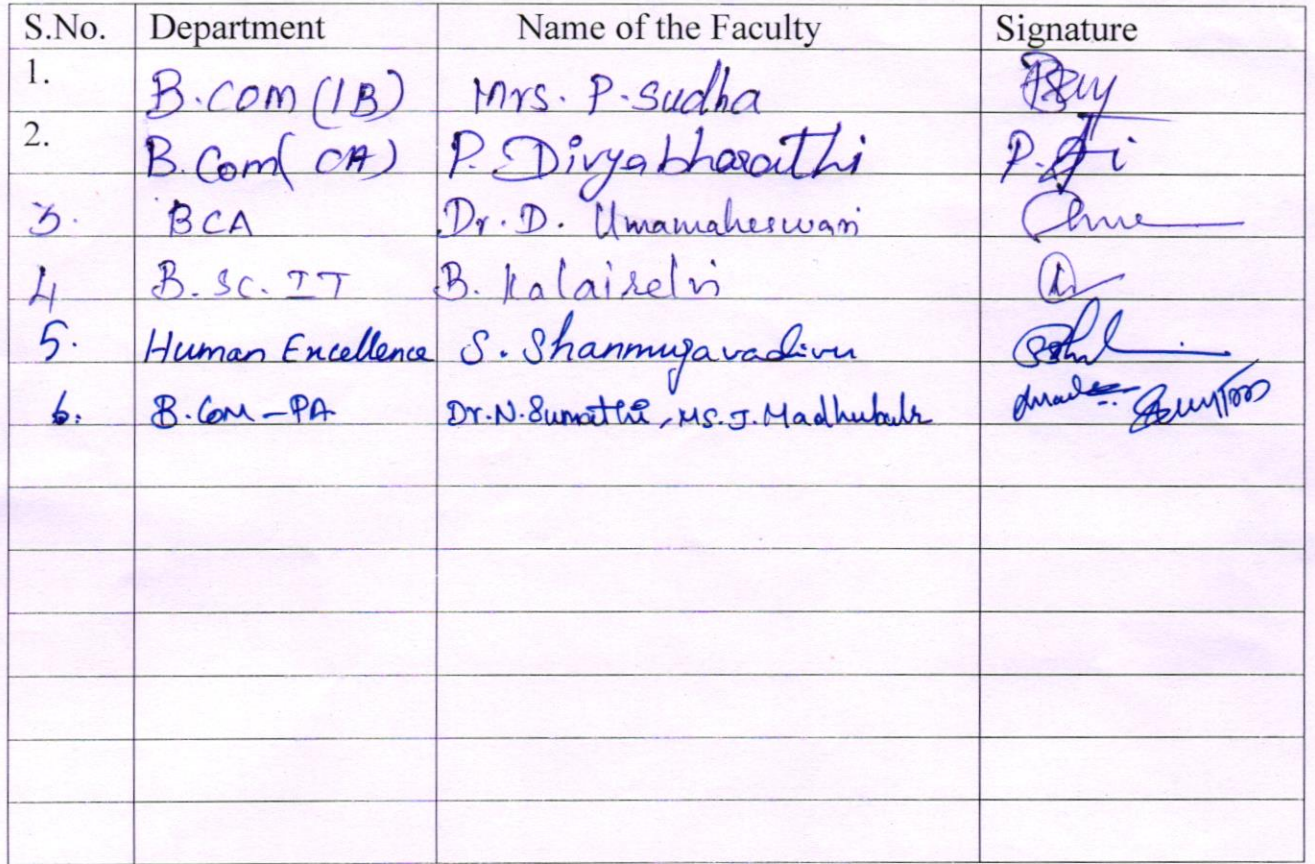 S.No. Department Name of the Faculty Signature
1. B.Com (IB) Mrs. P. Sudha
2. B.Com( CA) P. Divyabharathi
3. BCA Dr. D. Umamaheswari
4 B. Sc. IT B. Kalaiselvi
5. Human Excellence S. Shanmugavadivu
6. B.Com-PA Dr.N.Sumathi, Ms. J. Madhubala